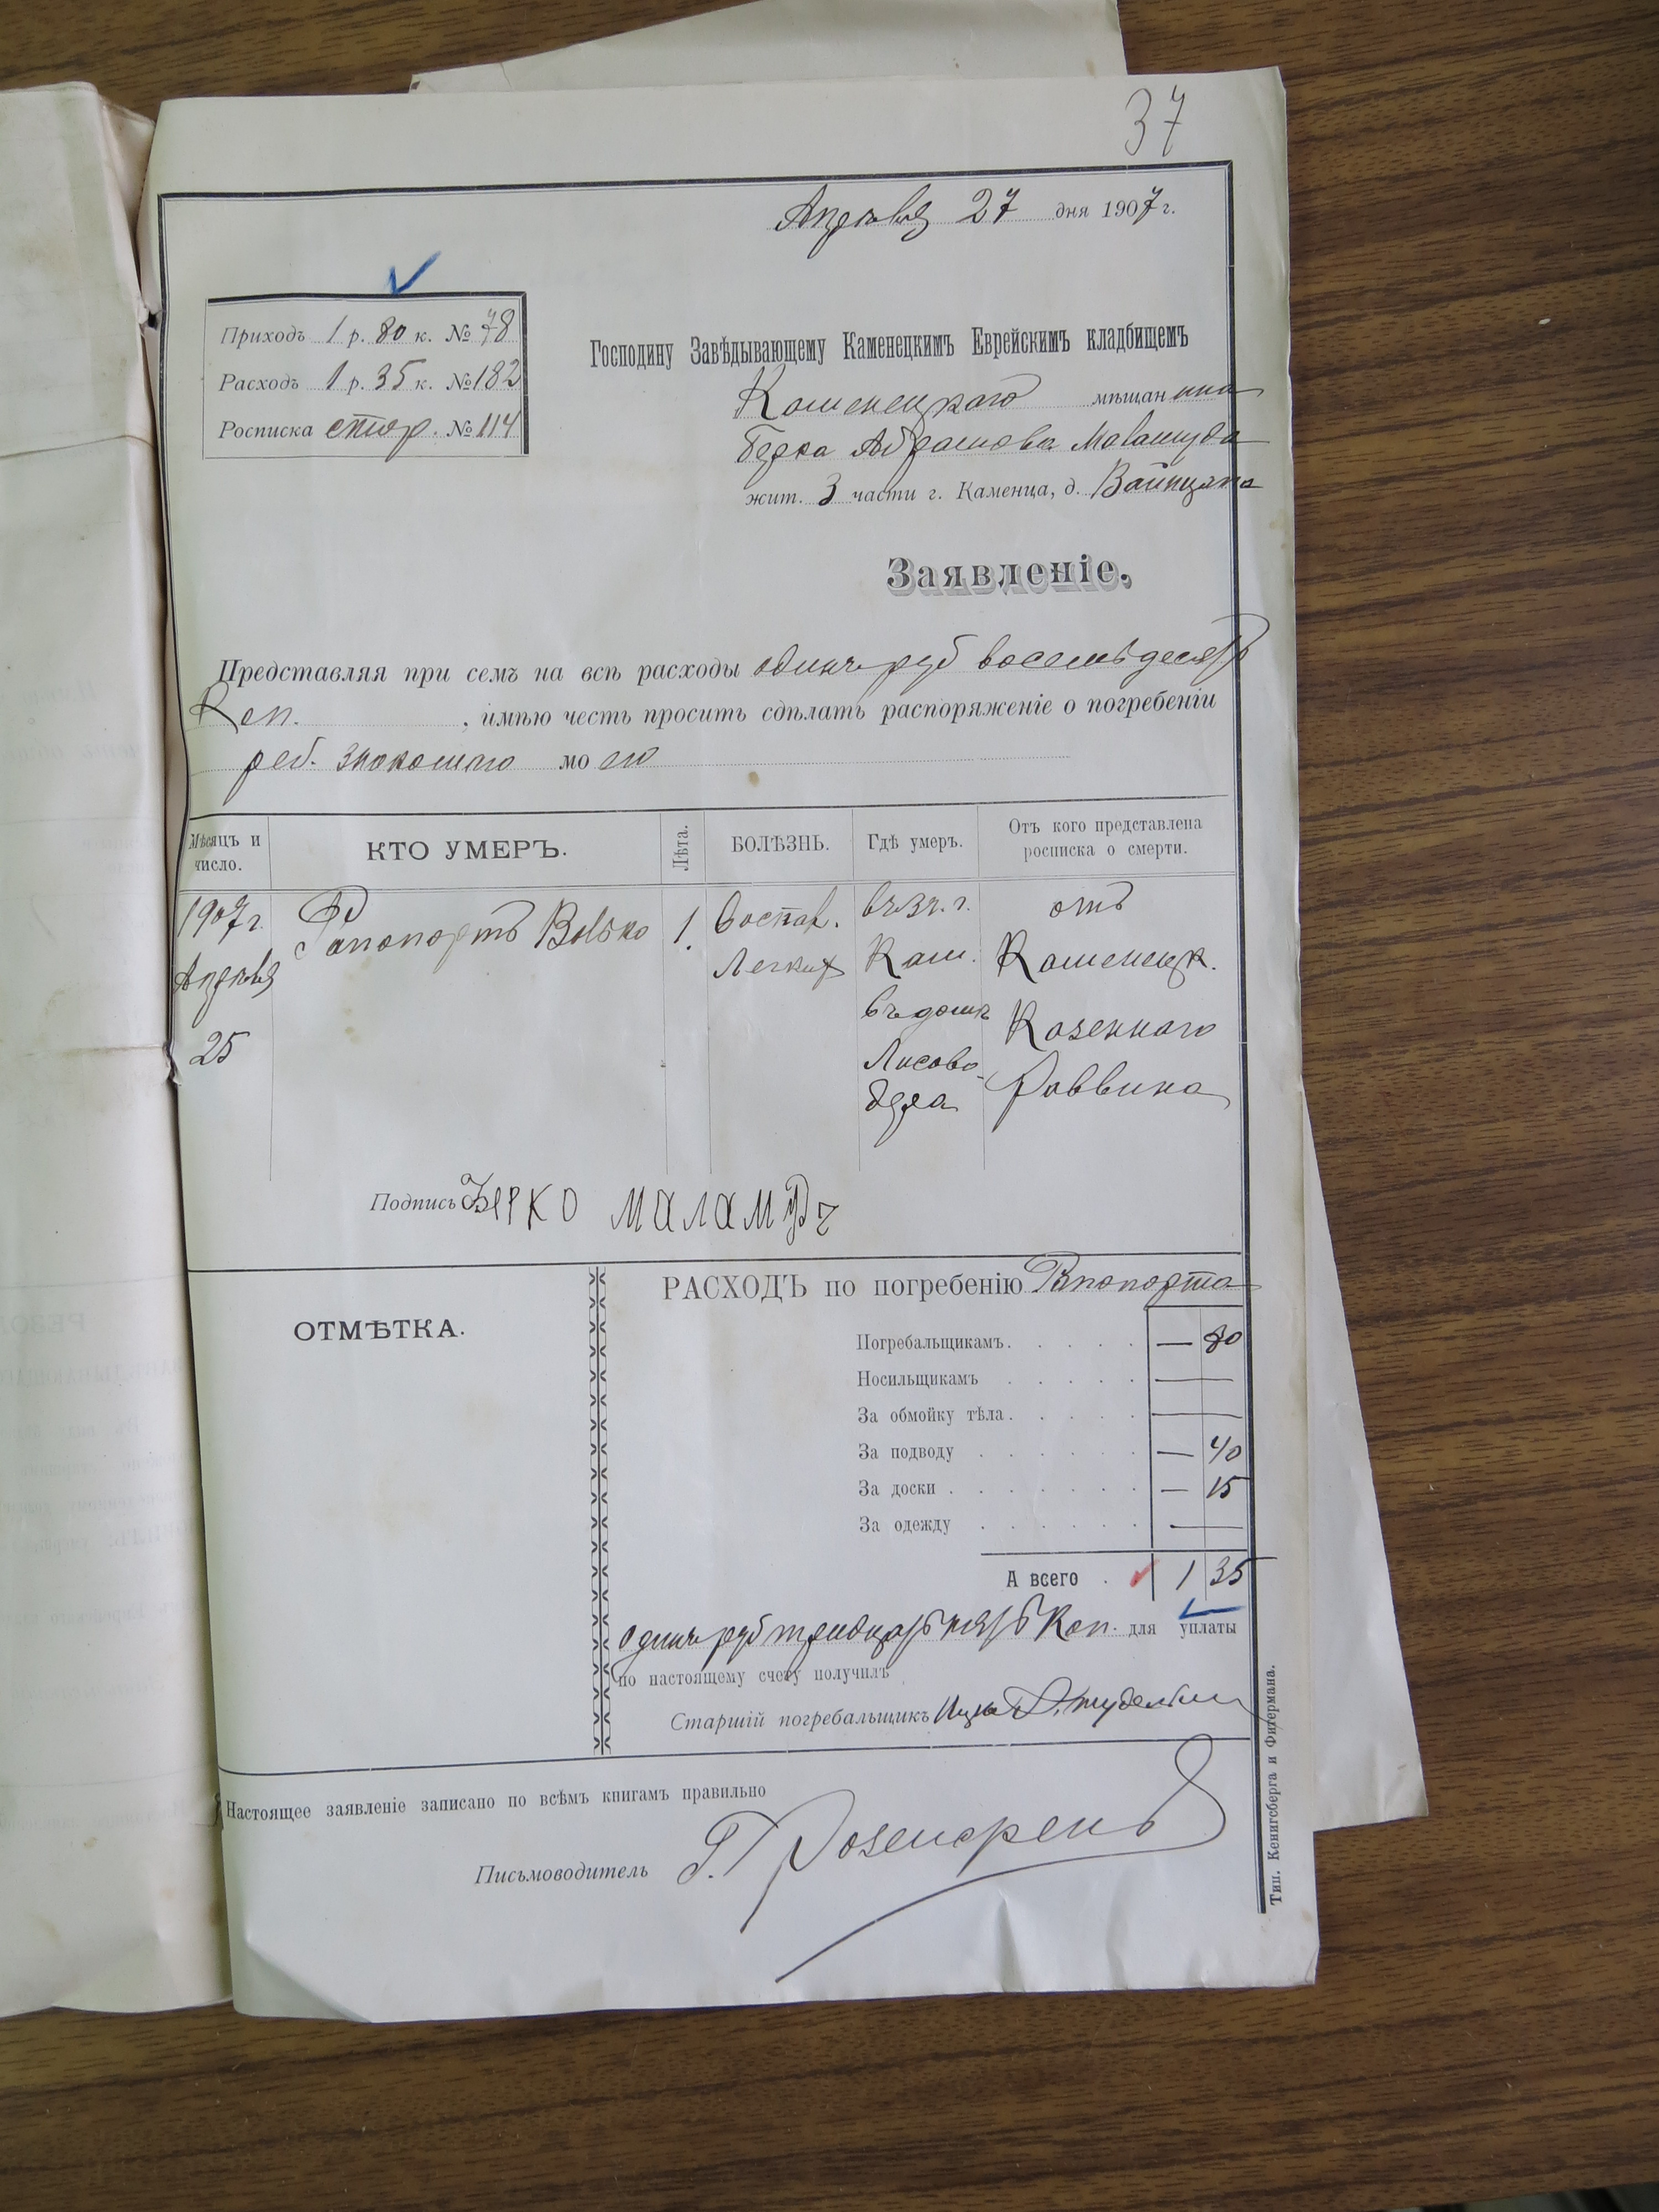 37
Апрѣля 27 дня 1907 г.
Приходъ 1 р. 80 к. № 78
Расходъ 1 р. 35 к. № 182
Росписка стор. № 114
Господину Завѣдывающему Каменецкимъ Еврейскимъ кладбищемъ
Каменецкаго мѣщанина
Берка Абрамова Маламуда
жит. 3 части г. Каменца, д. Вайнцвига
Заявленіе.
Представляя при семъ на всѣ расходы одинъ руб восемьдесятъ
Коп. , имѣю честь просить сдѣлать распоряженіе о погребеніи
реб. знакомаго моего
Мѣсяцъ и число.
КТО УМЕРЪ.
Лѣта.
БОЛѢЗНЬ.
Гдѣ умеръ.
Отъ кого представлена росписка о смерти.
1907 г. Рапопортъ Волько 1. Воспал. въ г. отъ
Апрѣля Легких Кам. Каменецк.
25 въ домѣ Казеннаго
Лисово- Раввина
дера
Подпись БЕРКО МАЛАМУДЪ
ОТМѢТКА.
РАСХОДЪ по погребенію Рапопорта
Погребальщикамъ. — 80
Носильщикамъ —
За обмойку тѣла. —
За подводу — 40
За доски — 15
За одежду —
А всего 1 35
одинъ руб тридцать пять Коп. для уплаты
по настоящему счету получилъ
Старшій погребальщикъ Ицко
Настоящее заявленіе записано по всѣмъ книгамъ правильно
Письмоводитель Г. Розенгренъ
Тип. Кенигсберга и Фитермана.